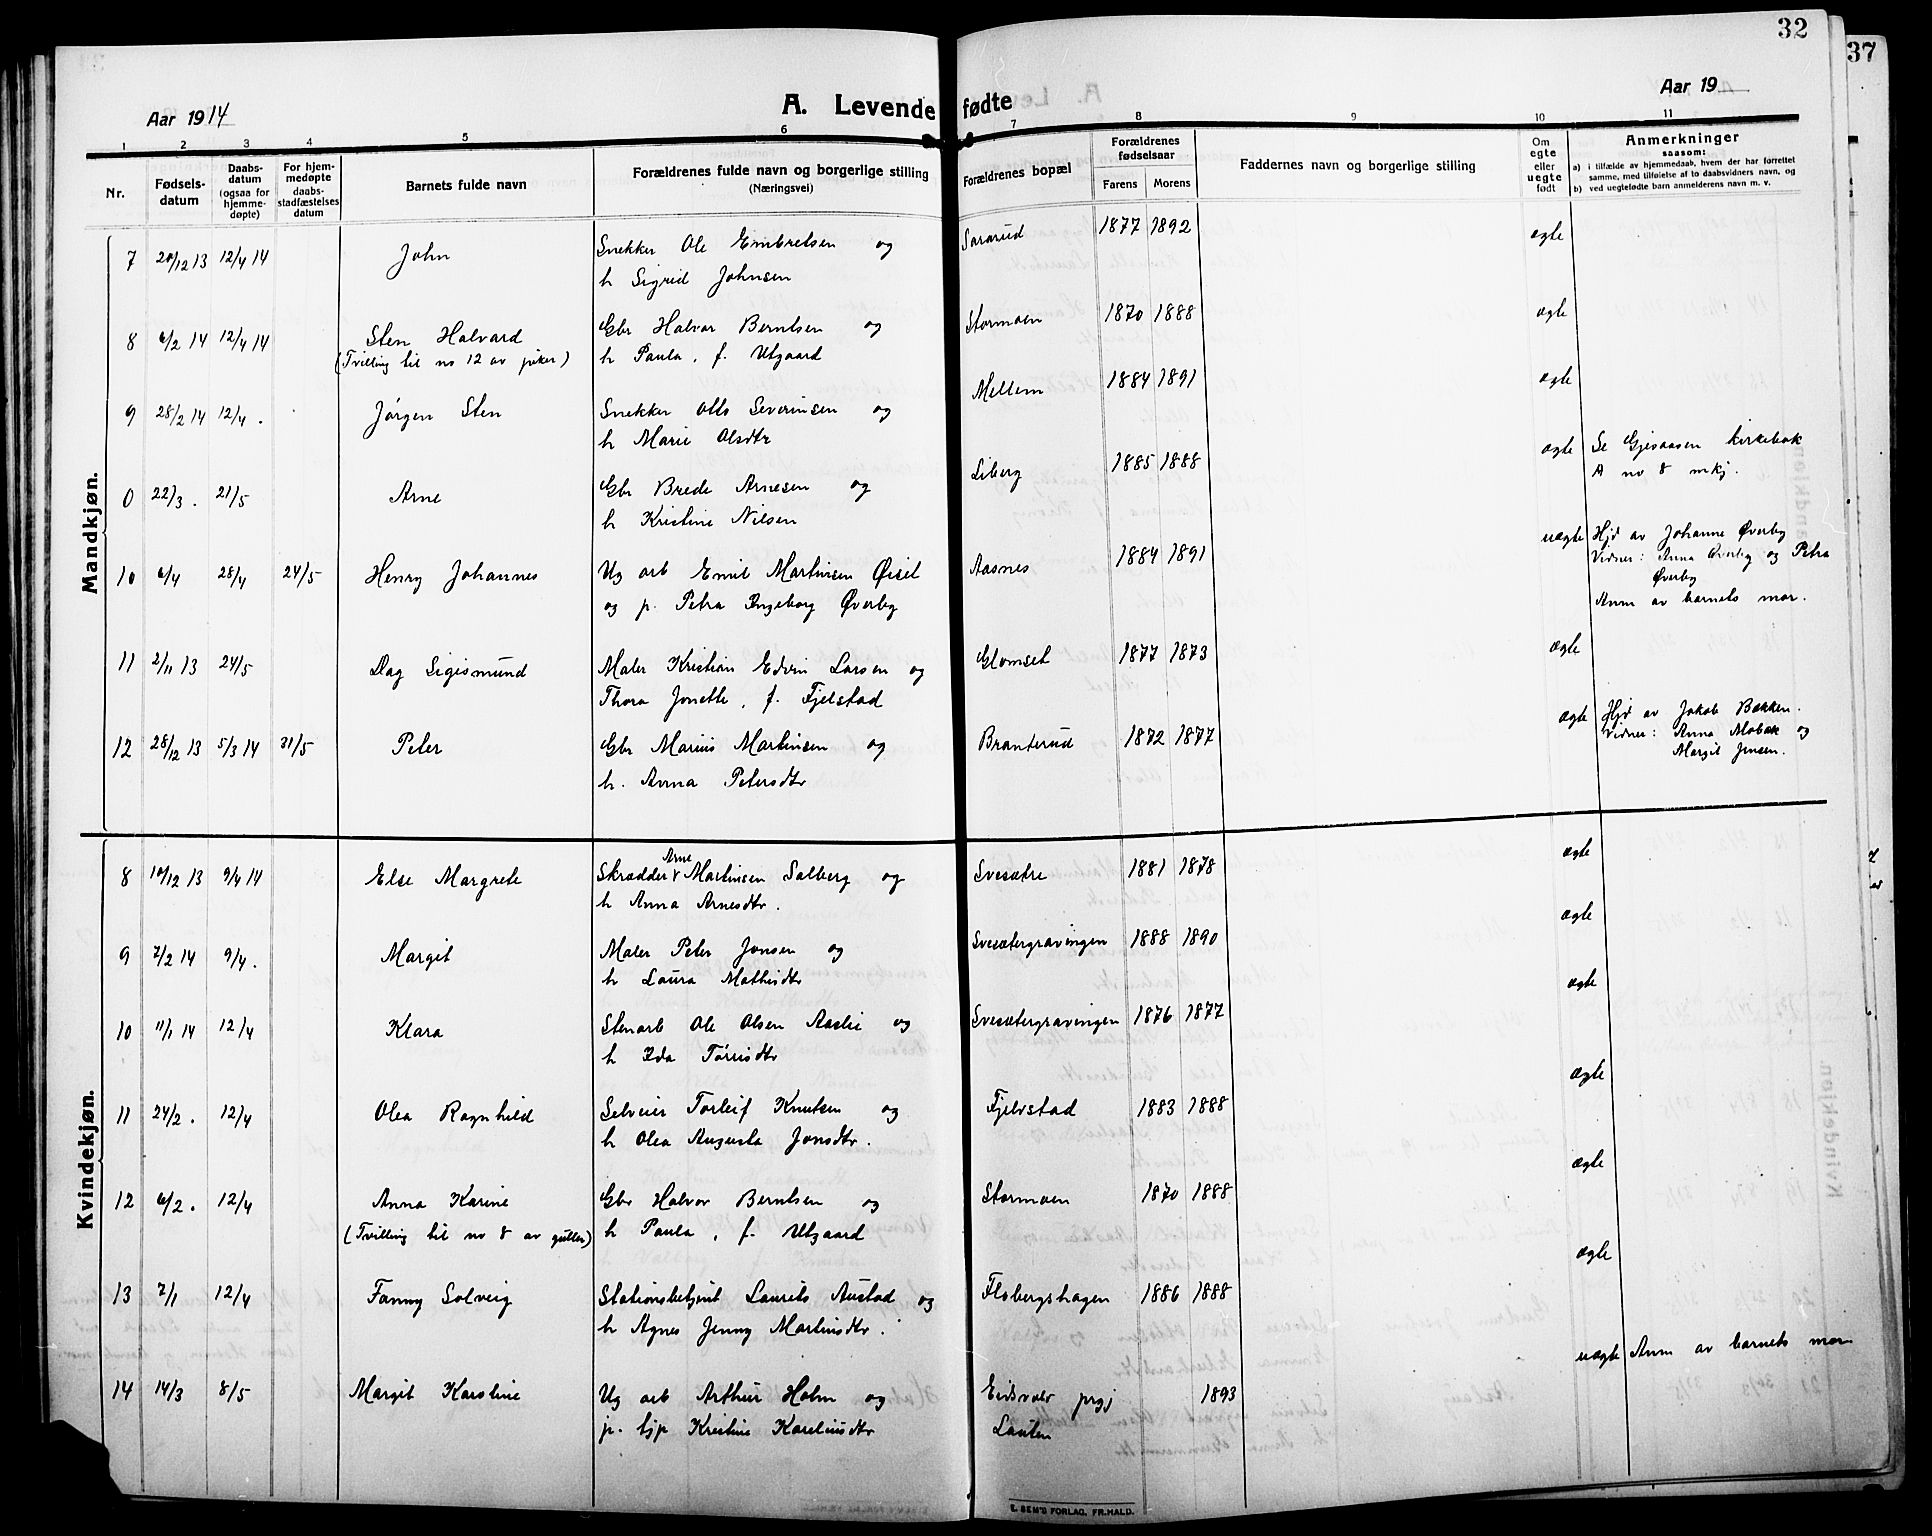 32
37
Aar 1914
A. Levende fødte
Aar 19
1 2 3 4 5 6 7 8 9 10 11
Nr.
Fødsels-
datum
Daabs-
datum
(ogsaa for
hjemme-
døpte)
For hjem-
medøpte
daabs-
stadfæstelses
datum
Barnets fulde navn
Forældrenes fulde navn og borgerlige stilling
(Næringsvei)
Forældrenes bopæl
Forældrenes
fødselsaar
Farens Morens
Faddernes navn og borgerlige stilling
Om
egte
eller
uegte
født
Anmerkninger
saasom:
a) i tilfælde av hjemmedaab, hvem der har forrettet
samme, med tilføielse af to daabsvidners navn, og
b) ved uegtefødte barn anmelderens navn m. v.
Mandkjøn.
7 20/12 13 12/4 14 John Snekker Ole Embretsen og Sararud 1877 1892 ægte
h Sigrid Johnsen
8 6/2 14 12/4 14 Sten Halvard Gbr Halvor Berntsen og Stormoen 1870 1888 ægte
(Tvilling til no 12 av piker) h Paula, f. Utgaard
9 28/2 14 12/4 . Jørgen Sten Snekker Otto Severinsen og Mellem 1884 1891 ægte
h Marie Olsdtr
0 22/3 . 21/5 Arne Gbr Brede Arnesen og Liberg 1885 1888 ægte Se Gjesaasen kirkebok
h Kristine Nilsen A no 8 mkj.
10 6/4 28/4 24/5 Henry Johannes Ug arb Emil Martinsen Øiset Aasnes 1884 1891 uægte Hjd av Johanne Øverby
og p. Petra Ingeborg Øverby Vidner: Anna Øverby og Petra
Øverby
Anm av barnets mor.
11 2/11 13 24/5 Dag Sigismund Maler Kristian Edvin Larsen og Glomset 1877 1873 ægte
Thora Jonette, f. Fjelstad
12 28/12 13 5/3 14 31/5 Peter Gbr Marius Martinsen og Branterud 1872 1877 ægte Hjd av Jakob Bakken.
h. Anna Petersdtr Vidner: Anna Mobak og
Margit Jensen.
Kvindekjøn.
8 10/12 13 9/4 14 Else Margrete Skrædder Arne Martinsen Solberg og Svesætre 1881 1878 ægte
h Anna Arnesdtr.
9 7/2 14 9/4. Margit Maler Peter Jonsen og Svesætergravingen 1888 1890 ægte
h Laura Mathisdtr
10 11/1 14 12/4 Klara Stenarb Ole Olsen Aaslie og Svesætergravingen 1876 1877 ægte
h Ida Tørrisdtr
11 24/2 . 12/4 Olea Ragnhild Selveier Torleif Knutsen og Fjelstad 1883 1888 ægte
h Olea Augusta Jonsdtr.
12 6/2 . 12/4 Anna Karine Gbr Halvor Berntsen og Stormoen 1870 1888 ægte
(Tvilling til no 8 av gutter) h Paula, f. Utgaard
13 7/1 12/4 Fanny Solveig Stationsbetjent Laurits Austad og Flobergshagen 1886 1888 ægte
h Agnes Jenny Martinsdtr.
14 14/3 8/5 Margit Karstine Ug arb Arthur Holm og Eidsvold prgj 1893 uægte Anm av barnets mor
p. tjp Kristine Kareliusdtr Lauten
E. SEM'S FORLAG, FR.HALD.